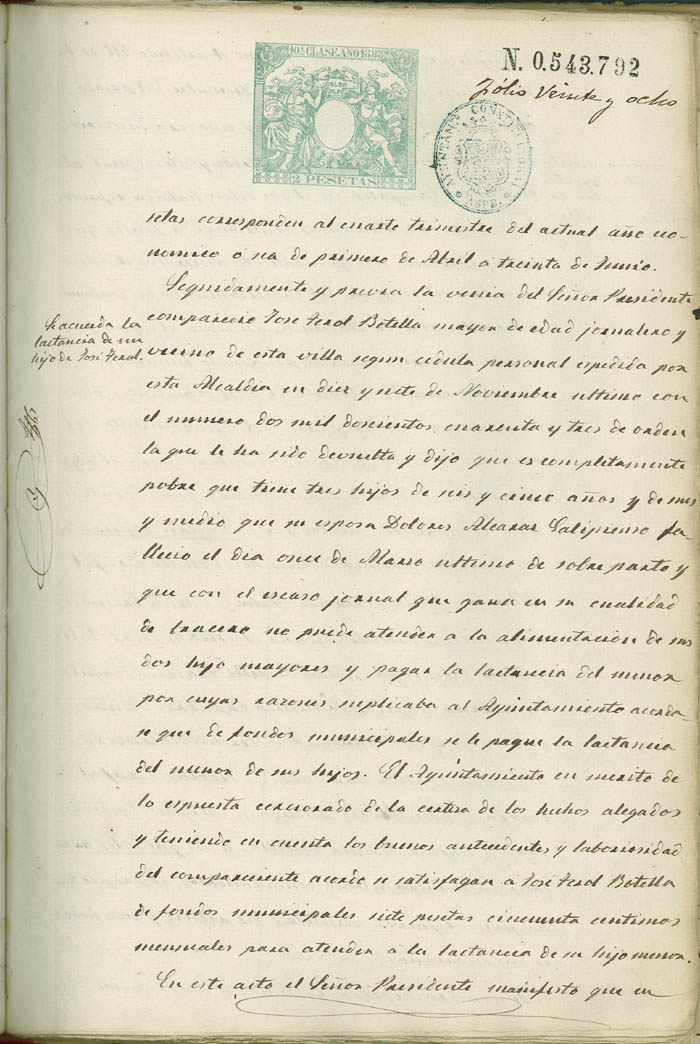 10ª CLASE. AÑO 1885
2 PESETAS
N. 0.543.792
Fólio Veinte y ocho
AYUNTAMTº CONSTITUCIONAL
ASPE.
setas corresponden al cuarto trimestre del actual año eco-
nomico ó sea de primero de Abril a treinta de Junio.
Seguidamente y previa la venia del Señor Presidente
Se acuerda la
lactancia de un
hijo de José Ferol.
comparecio José Ferol Botella mayor de edad jornalero y
vecino de esta villa segun cédula personal espedida por
esta Alcaldia en diez y siete de Noviembre ultimo con
el numero dos mil doscientos cuarenta y tres de orden
la que le ha sido devuelta y dijo que es completamente
pobre que tiene tres hijos de seis y cinco años y de mes
y medio que su esposa Dolores Alcaraz Galiprenso fa-
llecio el dia once de Marzo ultimo de sobre parto y
que con el escaso jornal que gana en su cualidad
de bracero no puede atender a la alimentacion de sus
dos hijo mayores y pagar la lactancia del menor
por cuyas razones suplicaba al Ayuntamiento acorda-
se que de fondos municipales se le pague la lactancia
del menor de sus hijos. El Ayuntamiento en merito de
lo espuesto cerciorado de la certeza de los hechos alegados
y teniendo en cuenta los buenos antecedentes y laboriosidad
del compareciente acordo se satisfagan a José Ferol Botella
de fondos municipales siete pesetas cincuenta centimos
mensuales para atender á la lactancia de su hijo menor.
En este acto el Señor Presidente manifesto que en